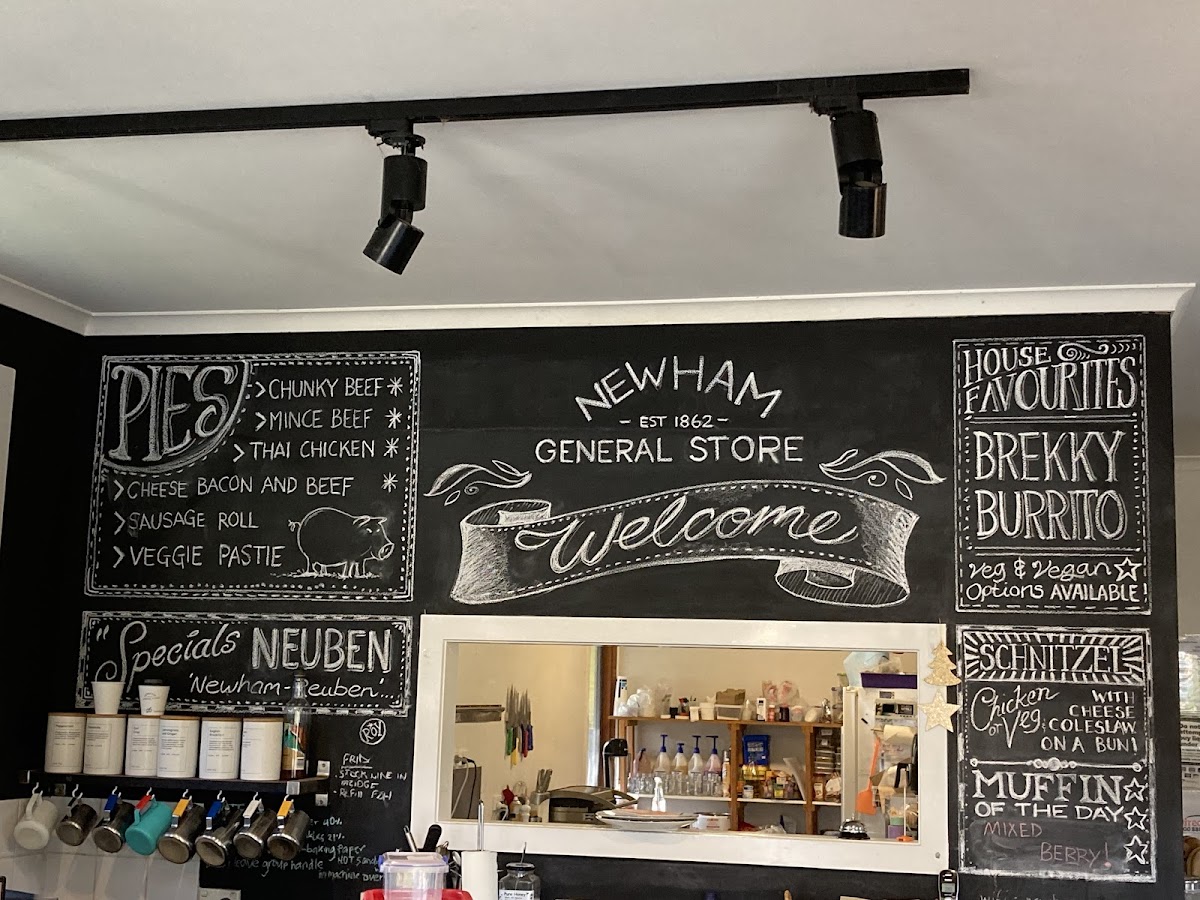 PIES
>CHUNKY BEEF*
>MINCE BEEF *
>THAI CHICKEN *
>CHEESE BACON AND BEEF *
>SAUSAGE ROLL
>VEGGIE PASTIE
"Specials NEUBEN
'Newham-Reuben'...
NEWHAM
- EST 1862 -
GENERAL STORE
Welcome
HOUSE
FAVOURITES
BREKKY
BURRITO
Veg & Vegan
Options AVAILABLE
SCHNITZEL
Chicken or Veg
WITH
CHEESE
COLESLAW
ON A BUN!
MUFFIN
OF THE DAY
MIXED
BERRY!
. STOCK WINE IN
FRIDGE
- REFILL
-baking paper
group handle
in machine over